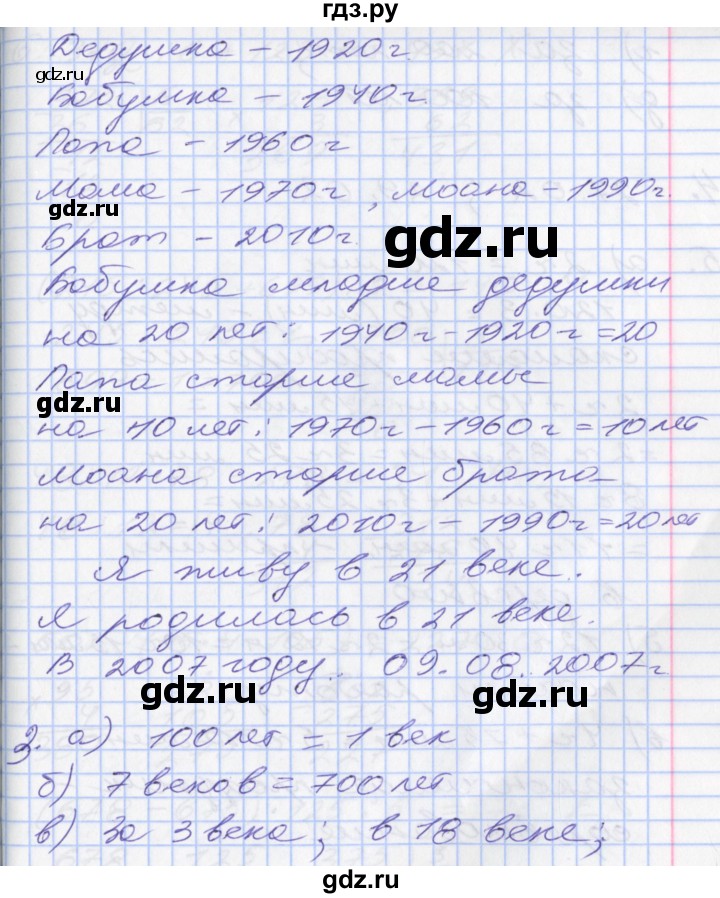 гдз.ру
Дедушка – 1920 г.
Бабушка – 1940 г.
Папа – 1960 г
Мама – 1970 г, Моана – 1990 г.
gdz.ru
gdz.ru
Брат – 2010 г.
Бабушка младше дедушки
на 20 лет: 1940 г – 1920 г = 20
Папа старше мамы
gdz.ru
на 10 лет: 1970 г – 1960 г = 10 лет
Моана старше брата
на 20 лет: 2010 г – 1990 г = 20 лет
Я живу в 21 веке.
Я родилась в 21 веке.
В 2007 году. 09.08.2007 г
gdz.ru gdz.ru
3. а) 100 лет = 1 век
б) 7 веков = 700 лет
в) За 3 века; в 18 веке;
gdz.ru